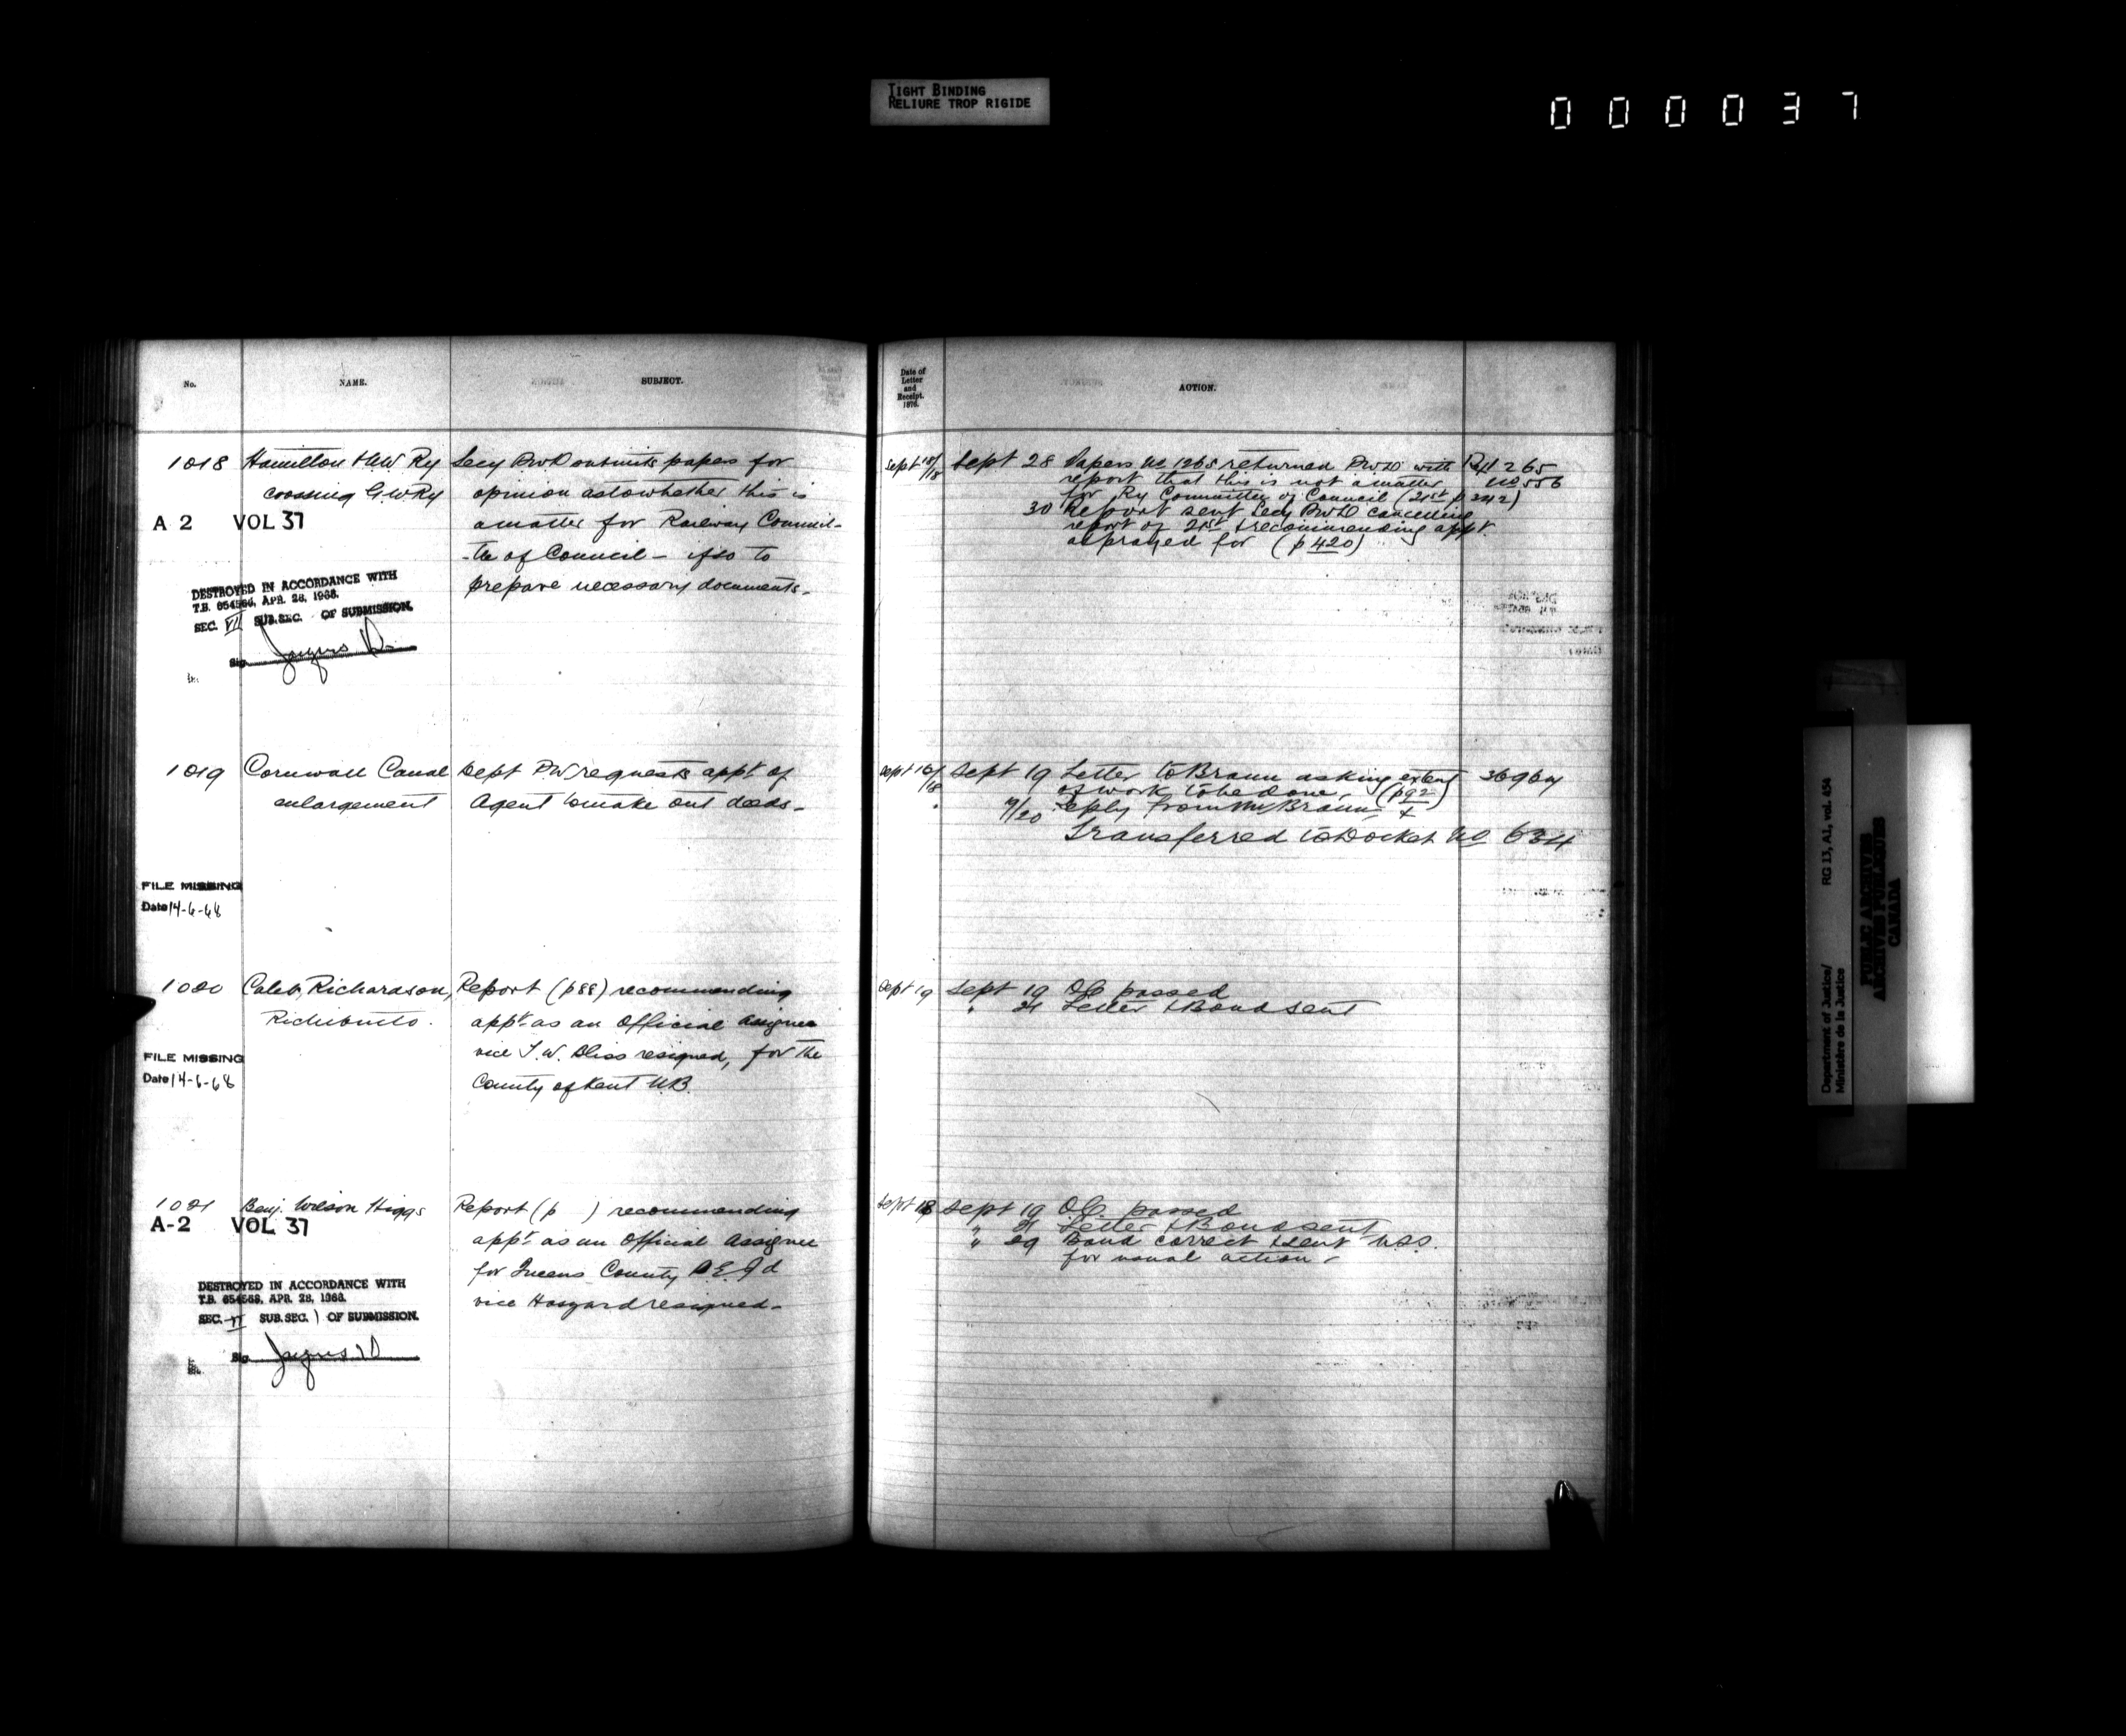 TIGHT BINDING
RELIURE TROP RIGIDE
000037
No.
NAME.
SUBJECT.
Date of
Letter
and
Receipt.
1876.
ACTION.
1018 Hamilton & N.W Ry Secy PWD submits papers for
crossing G.W Ry opinion as to whether this is
A 2 VOL 37 a matter for Railway Commit-
-tee of Council - if so to
prepare necessary documents.
DESTROYED IN ACCORDANCE WITH
T.B. 654568, APR. 28, 1966.
SEC. VI SUB.SEC. OF SUBMISSION.
Sig
Sept 18/18 Sept 28 Papers No 1265 returned PWD with Ry 1265
report that this is not a matter No 556
for Ry Committee of Council (21st p 242)
30 Report sent Secy PWD cancelling
report of 21st & recommending appt.
as prayed for (p 420)
1019 Cornwall Canal Dept PW requests appt of
enlargement Agent to make out deeds.
FILE MISSING
Date 14-6-68
Sept 16/18 Sept 19 Letter to Braun asking extent 36964
of work to be done. (p 92)
19/20 Reply from Mr Braun &
Transferred to Docket No 634
1020 Caleb Richardson, Report (p 88) recommending
Richibucto. appt as an Official Assignee
vice T.W. Bliss resigned, for the
County of Kent N.B.
FILE MISSING
Date 14-6-68
Sept 19 Sept 19 OC passed
" 21 Letter & Bond sent
1021 Benj. Wilson Higgs Report (p ) recommending
A-2 VOL 37 appt as an Official Assignee
for Queens County P.E.Id
vice Haszard resigned.
DESTROYED IN ACCORDANCE WITH
T.B. 654568, APR. 28, 1966.
SEC. VI SUB.SEC. ) OF SUBMISSION.
Sig
Sept 18 Sept 19 O.C. passed
" 21 Letter & Bond sent
" 29 Bond correct & sent U.S.S.
for usual action.
Department of Justice/
Ministère de la Justice
RG 13, A1, vol. 454
PUBLIC ARCHIVES
ARCHIVES PUBLIQUES
CANADA